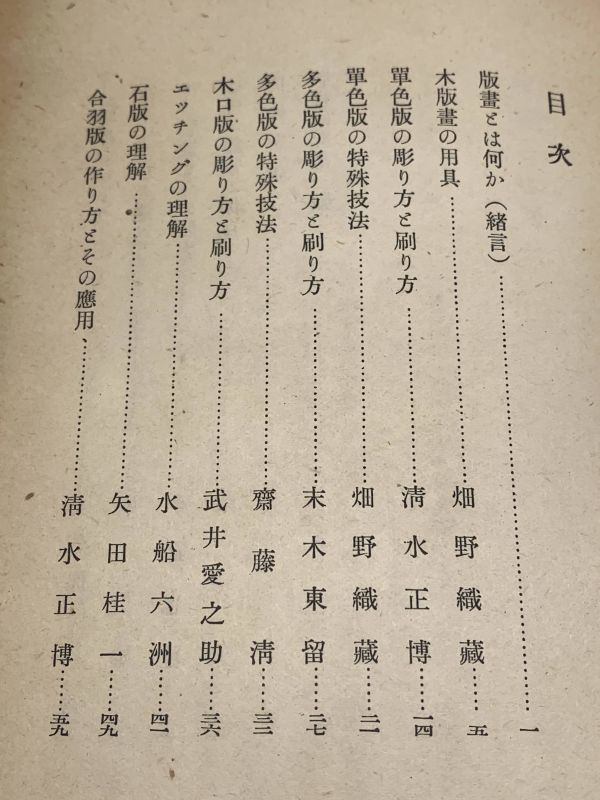 目次
版畫とは何か（緒言）……一
木版畫の用具……畑野織藏……五
單色版の彫り方と刷り方……淸水正博……一四
單色版の特殊技法……畑野織藏……二一
多色版の彫り方と刷り方……末木東留……二七
多色版の特殊技法……齋藤淸……三二
木口版の彫り方と刷り方……武井愛之助……三六
エッチングの理解……水船六洲……四一
石版の理解……矢田桂一……四九
合羽版の作り方とその應用……淸水正博……五九